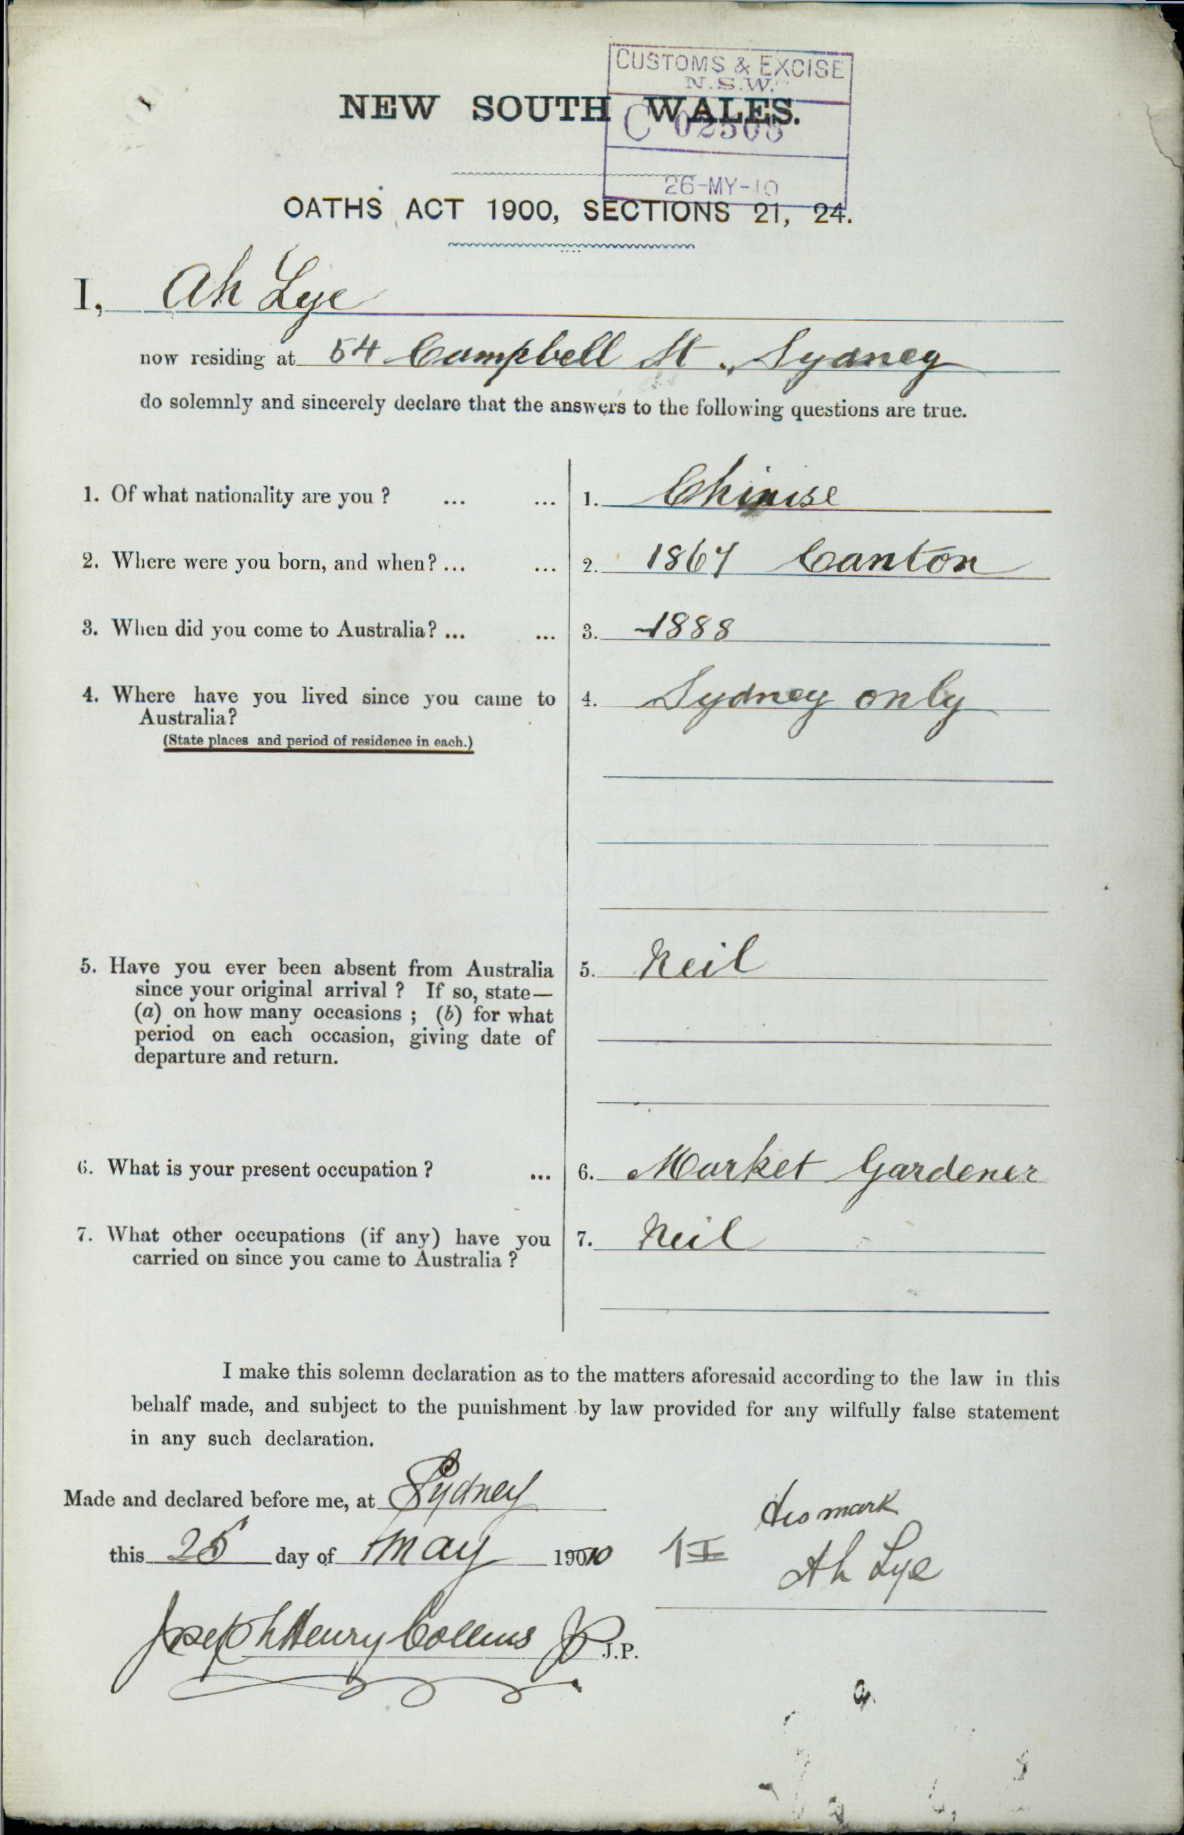 CUSTOMS & EXCISE
N.S.W.
NEW SOUTH WALES.
C 02505
26-MY-10
OATHS ACT 1900, SECTIONS 21, 24.
I, Ah Lye
now residing at 54 Campbell St. Sydney
do solemnly and sincerely declare that the answers to the following questions are true.
1. Of what nationality are you ? ... ... 1. Chinise
2. Where were you born, and when? ... ... 2. 1867 Canton
3. When did you come to Australia? ... ... 3. 1888
4. Where have you lived since you came to 4. Sydney only
Australia?
(State places and period of residence in each.)
5. Have you ever been absent from Australia 5. Neil
since your original arrival ? If so, state—
(a) on how many occasions ; (b) for what
period on each occasion, giving date of
departure and return.
6. What is your present occupation ? ... 6. Market Gardener
7. What other occupations (if any) have you 7. Neil
carried on since you came to Australia ?
I make this solemn declaration as to the matters aforesaid according to the law in this
behalf made, and subject to the punishment by law provided for any wilfully false statement
in any such declaration.
Made and declared before me, at Sydney
his mark
this 25 day of May 1910
Ah Lye
Joseph Henry Collins JP J.P.